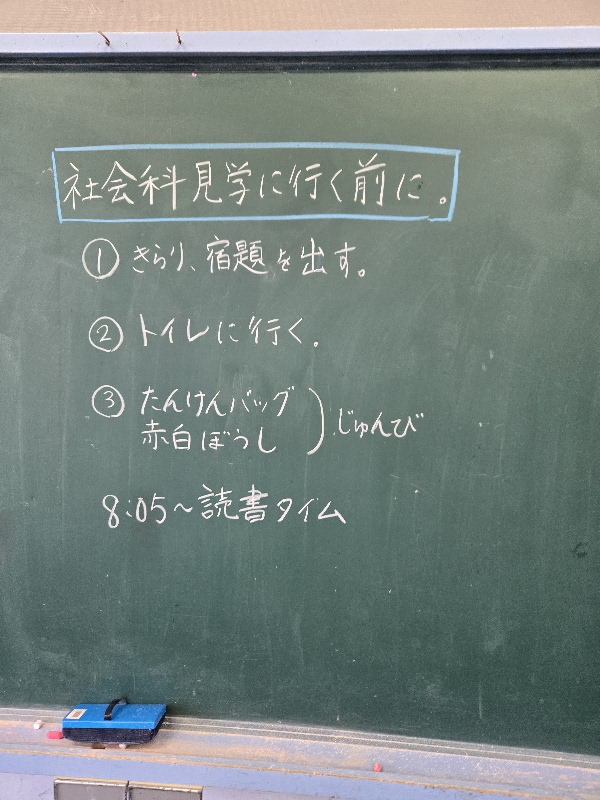 社会科見学に行く前に。
① きらり、宿題を出す。
② トイレに行く。
③ たんけんバッグ
赤白ぼうし
じゅんび
8:05〜読書タイム